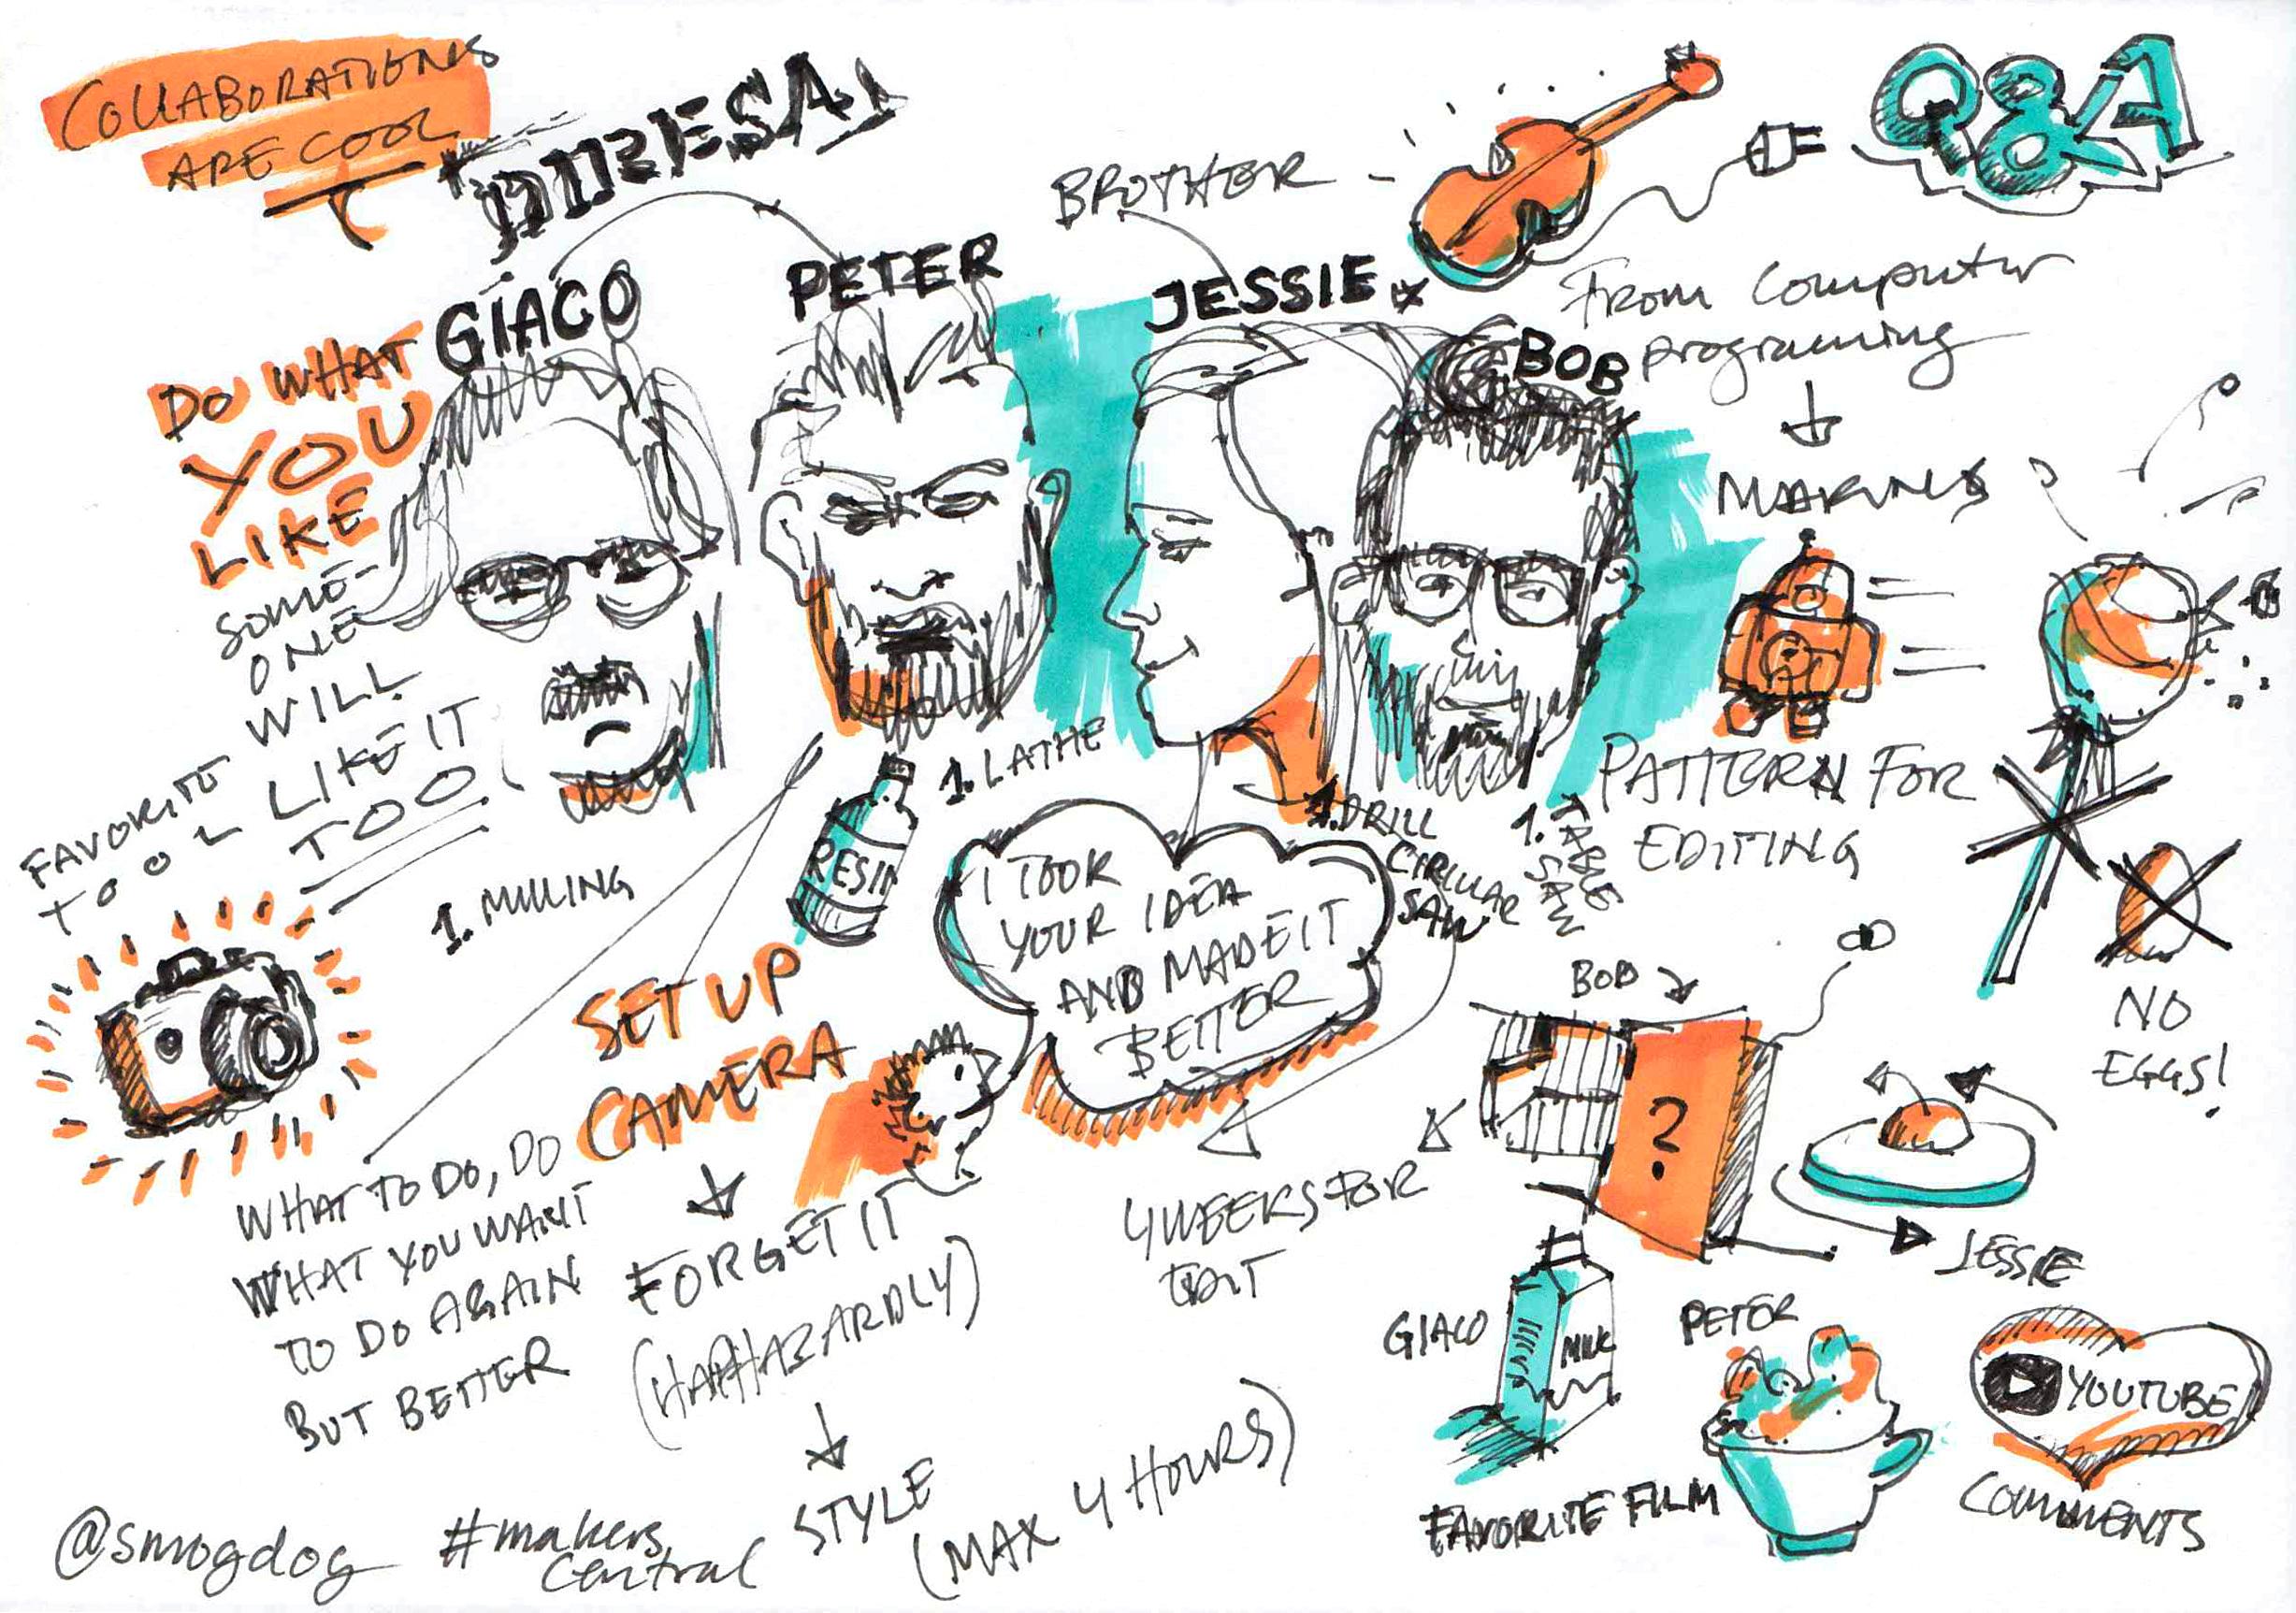 COLLABORATIONS
ARE COOL
DIRESA
BROTHER
Q&A
GIACO
PETER
JESSIE
BOB
FROM Computer
programing
MAKING
DO WHAT
YOU
LIKE
SOME-
ONE
WILL
LIKE IT
TOO
FAVORITE
TOOL
1. MILLING
RESIN
1. LATHE
1. DRILL
CIRCULAR
SAW
1. TABLE
SAW
PATTERN FOR
EDITING
I TOOK
YOUR IDEA
AND MADE IT
BETTER
SET UP
CAMERA
FORGET IT
(HAPHAZARDLY)
STYLE
(MAX 4 HOURS)
WHAT TO DO, DO
WHAT YOU WANT
TO DO AGAIN
BUT BETTER
4 WEEKS FOR
BOB
?
NO
EGGS!
JESSIE
GIACO
MILK
PETER
YOUTUBE
COMMENTS
FAVORITE FILM
@smogdog
#makers
central